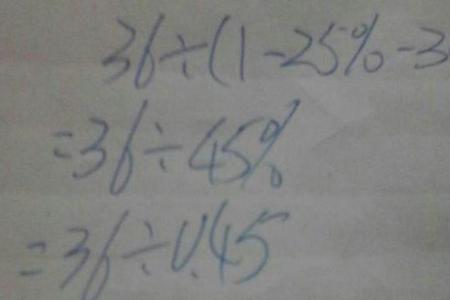 36÷(1-25%-3
=36÷45%
=36÷0.45